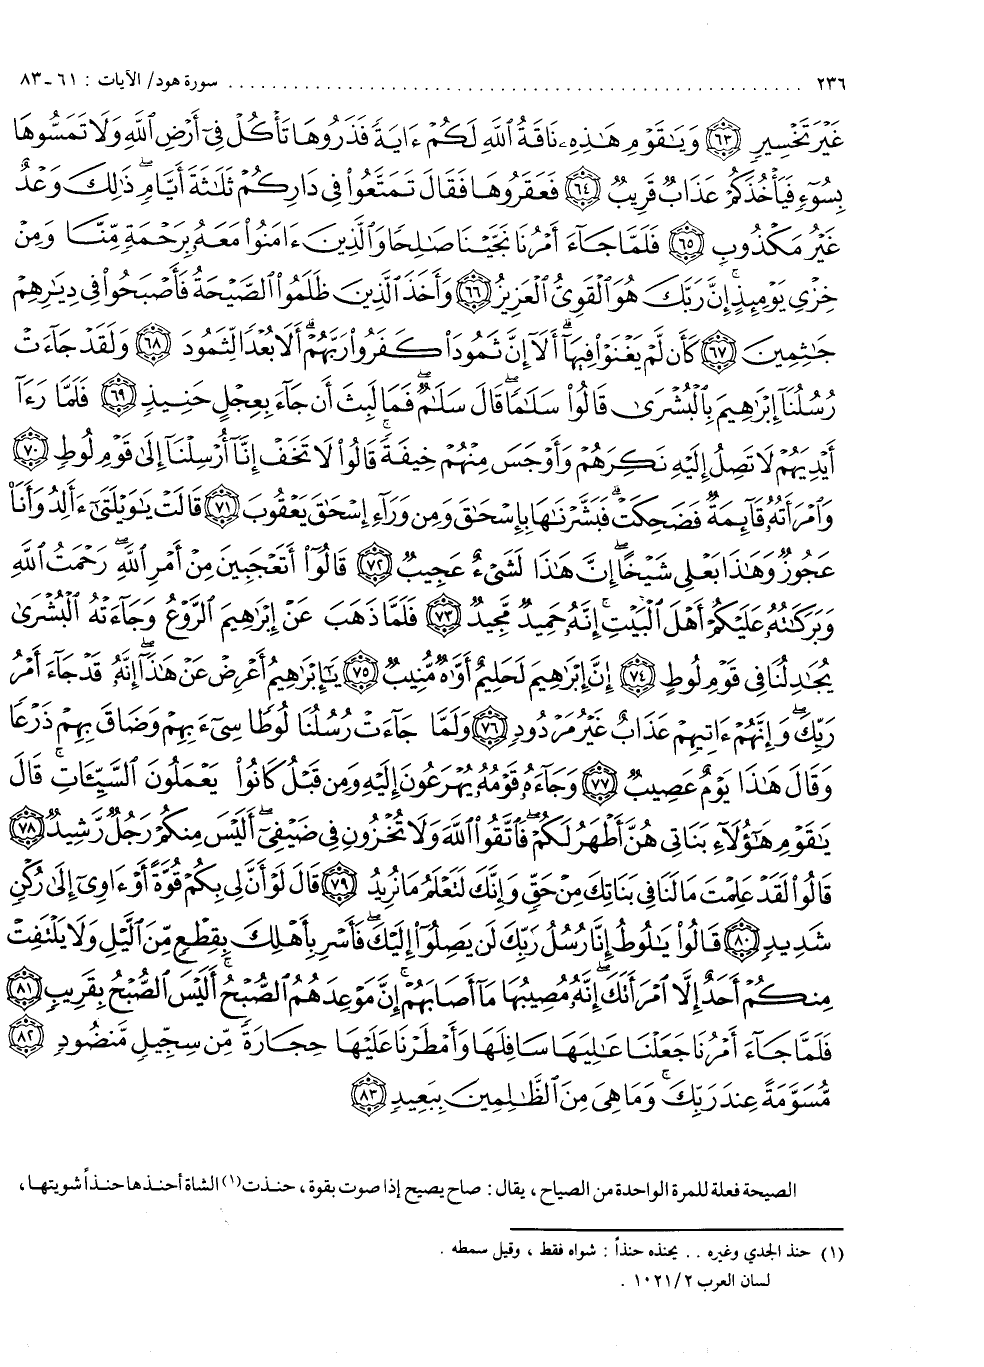 ٢٣٦ ........................................................ سورة هود/ الآيات : ٦١ - ٨٣
غَيْرَ تَخْسِيرٍ ﴿٦٣﴾ وَيَٰقَوْمِ هَٰذِهِۦ نَاقَةُ ٱللَّهِ لَكُمْ ءَايَةً فَذَرُوهَا تَأْكُلْ فِىٓ أَرْضِ ٱللَّهِ وَلَا تَمَسُّوهَا
بِسُوٓءٍ فَيَأْخُذَكُمْ عَذَابٌ قَرِيبٌ ﴿٦٤﴾ فَعَقَرُوهَا فَقَالَ تَمَتَّعُوا۟ فِى دَارِكُمْ ثَلَٰثَةَ أَيَّامٍۖ ذَٰلِكَ وَعْدٌ
غَيْرُ مَكْذُوبٍ ﴿٦٥﴾ فَلَمَّا جَآءَ أَمْرُنَا نَجَّيْنَا صَٰلِحًا وَٱلَّذِينَ ءَامَنُوا۟ مَعَهُۥ بِرَحْمَةٍ مِّنَّا وَمِنْ
خِزْىِ يَوْمِئِذٍۗ إِنَّ رَبَّكَ هُوَ ٱلْقَوِىُّ ٱلْعَزِيزُ ﴿٦٦﴾ وَأَخَذَ ٱلَّذِينَ ظَلَمُوا۟ ٱلصَّيْحَةُ فَأَصْبَحُوا۟ فِى دِيَٰرِهِمْ
جَٰثِمِينَ ﴿٦٧﴾ كَأَن لَّمْ يَغْنَوْا۟ فِيهَآۗ أَلَآ إِنَّ ثَمُودَا۟ كَفَرُوا۟ رَبَّهُمْۗ أَلَا بُعْدًا لِّثَمُودَ ﴿٦٨﴾ وَلَقَدْ جَآءَتْ
رُسُلُنَآ إِبْرَٰهِيمَ بِٱلْبُشْرَىٰ قَالُوا۟ سَلَٰمًاۖ قَالَ سَلَٰمٌۖ فَمَا لَبِثَ أَن جَآءَ بِعِجْلٍ حَنِيذٍ ﴿٦٩﴾ فَلَمَّا رَءَآ
أَيْدِيَهُمْ لَا تَصِلُ إِلَيْهِ نَكِرَهُمْ وَأَوْجَسَ مِنْهُمْ خِيفَةًۚ قَالُوا۟ لَا تَخَفْ إِنَّآ أُرْسِلْنَآ إِلَىٰ قَوْمِ لُوطٍ ﴿٧٠﴾
وَٱمْرَأَتُهُۥ قَآئِمَةٌ فَضَحِكَتْ فَبَشَّرْنَٰهَا بِإِسْحَٰقَ وَمِن وَرَآءِ إِسْحَٰقَ يَعْقُوبَ ﴿٧١﴾ قَالَتْ يَٰوَيْلَتَىٰٓ ءَأَلِدُ وَأَنَا۠
عَجُوزٌ وَهَٰذَا بَعْلِى شَيْخًاۖ إِنَّ هَٰذَا لَشَىْءٌ عَجِيبٌ ﴿٧٢﴾ قَالُوٓا۟ أَتَعْجَبِينَ مِنْ أَمْرِ ٱللَّهِۖ رَحْمَتُ ٱللَّهِ
وَبَرَكَٰتُهُۥ عَلَيْكُمْ أَهْلَ ٱلْبَيْتِۚ إِنَّهُۥ حَمِيدٌ مَّجِيدٌ ﴿٧٣﴾ فَلَمَّا ذَهَبَ عَنْ إِبْرَٰهِيمَ ٱلرَّوْعُ وَجَآءَتْهُ ٱلْبُشْرَىٰ
يُجَٰدِلُنَا فِى قَوْمِ لُوطٍ ﴿٧٤﴾ إِنَّ إِبْرَٰهِيمَ لَحَلِيمٌ أَوَّٰهٌ مُّنِيبٌ ﴿٧٥﴾ يَٰٓإِبْرَٰهِيمُ أَعْرِضْ عَنْ هَٰذَآۖ إِنَّهُۥ قَدْ جَآءَ أَمْرُ
رَبِّكَۖ وَإِنَّهُمْ ءَاتِيهِمْ عَذَابٌ غَيْرُ مَرْدُودٍ ﴿٧٦﴾ وَلَمَّا جَآءَتْ رُسُلُنَا لُوطًا سِىٓءَ بِهِمْ وَضَاقَ بِهِمْ ذَرْعًا
وَقَالَ هَٰذَا يَوْمٌ عَصِيبٌ ﴿٧٧﴾ وَجَآءَهُۥ قَوْمُهُۥ يُهْرَعُونَ إِلَيْهِ وَمِن قَبْلُ كَانُوا۟ يَعْمَلُونَ ٱلسَّيِّـَٔاتِۚ قَالَ
يَٰقَوْمِ هَٰٓؤُلَآءِ بَنَاتِى هُنَّ أَطْهَرُ لَكُمْۖ فَٱتَّقُوا۟ ٱللَّهَ وَلَا تُخْزُونِ فِى ضَيْفِىٓۖ أَلَيْسَ مِنكُمْ رَجُلٌ رَّشِيدٌ ﴿٧٨﴾
قَالُوا۟ لَقَدْ عَلِمْتَ مَا لَنَا فِى بَنَاتِكَ مِنْ حَقٍّ وَإِنَّكَ لَتَعْلَمُ مَا نُرِيدُ ﴿٧٩﴾ قَالَ لَوْ أَنَّ لِى بِكُمْ قُوَّةً أَوْ ءَاوِىٓ إِلَىٰ رُكْنٍ
شَدِيدٍ ﴿٨٠﴾ قَالُوا۟ يَٰلُوطُ إِنَّا رُسُلُ رَبِّكَ لَن يَصِلُوٓا۟ إِلَيْكَۖ فَأَسْرِ بِأَهْلِكَ بِقِطْعٍ مِّنَ ٱلَّيْلِ وَلَا يَلْتَفِتْ
مِنكُمْ أَحَدٌ إِلَّا ٱمْرَأَتَكَۖ إِنَّهُۥ مُصِيبُهَا مَآ أَصَابَهُمْۚ إِنَّ مَوْعِدَهُمُ ٱلصُّبْحُۚ أَلَيْسَ ٱلصُّبْحُ بِقَرِيبٍ ﴿٨١﴾
فَلَمَّا جَآءَ أَمْرُنَا جَعَلْنَا عَٰلِيَهَا سَافِلَهَا وَأَمْطَرْنَا عَلَيْهَا حِجَارَةً مِّن سِجِّيلٍ مَّنضُودٍ ﴿٨٢﴾
مُّسَوَّمَةً عِندَ رَبِّكَۖ وَمَا هِىَ مِنَ ٱلظَّٰلِمِينَ بِبَعِيدٍ ﴿٨٣﴾
الصيحة فعلة للمرة الواحدة من الصياح ، يقال : صاح يصيح إذا صوت بقوة ، حنذت(١) الشاة أحنذها حنذاً شويتها ،
(١) حنذ الجدي وغيره . . يحنذه حنذاً : شواه فقط ، وقيل سمطه .
لسان العرب ١٠٢١/٢ .